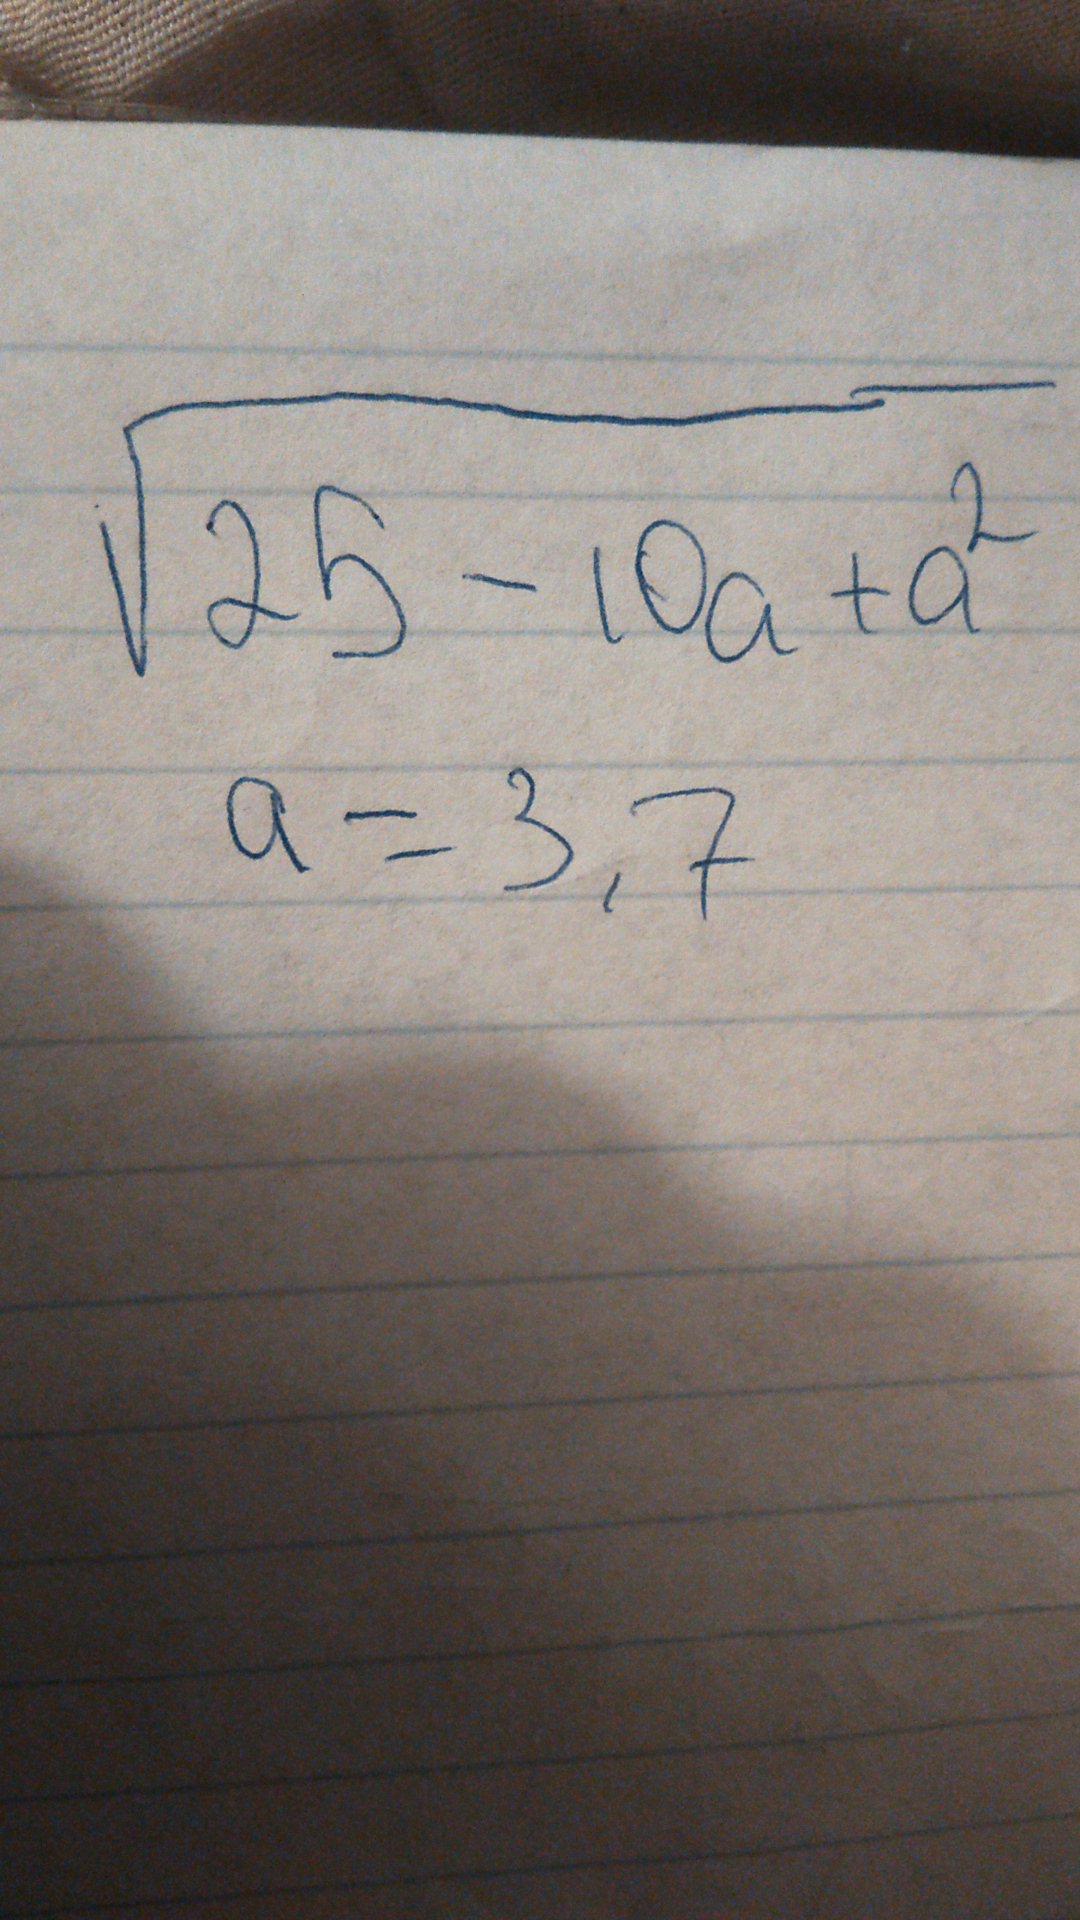 √25 - 10a + a²
a = 3,7